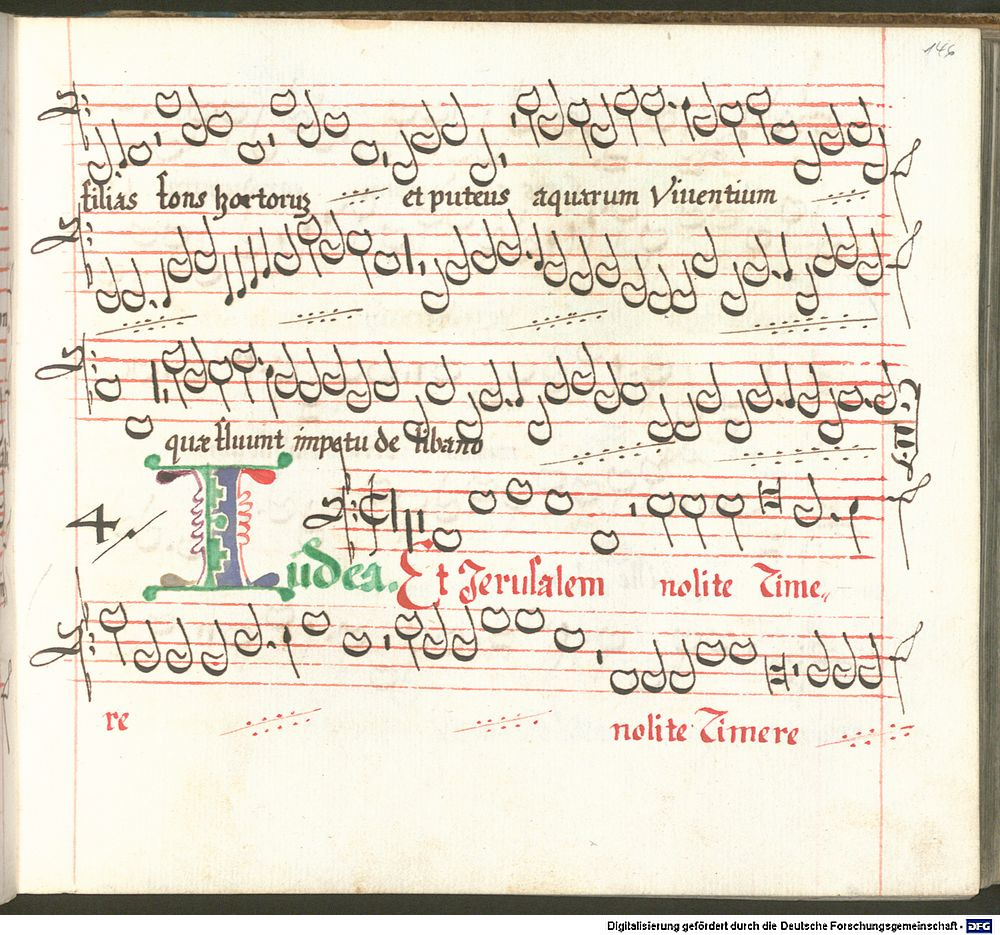 146
filias fons hortorum et puteus aquarum Viventium
quæ fluunt impetu de libano
4.
Iudea. Et Jerusalem nolite Time-
re nolite Timere
Digitalisierung gefördert durch die Deutsche Forschungsgemeinschaft - DFG